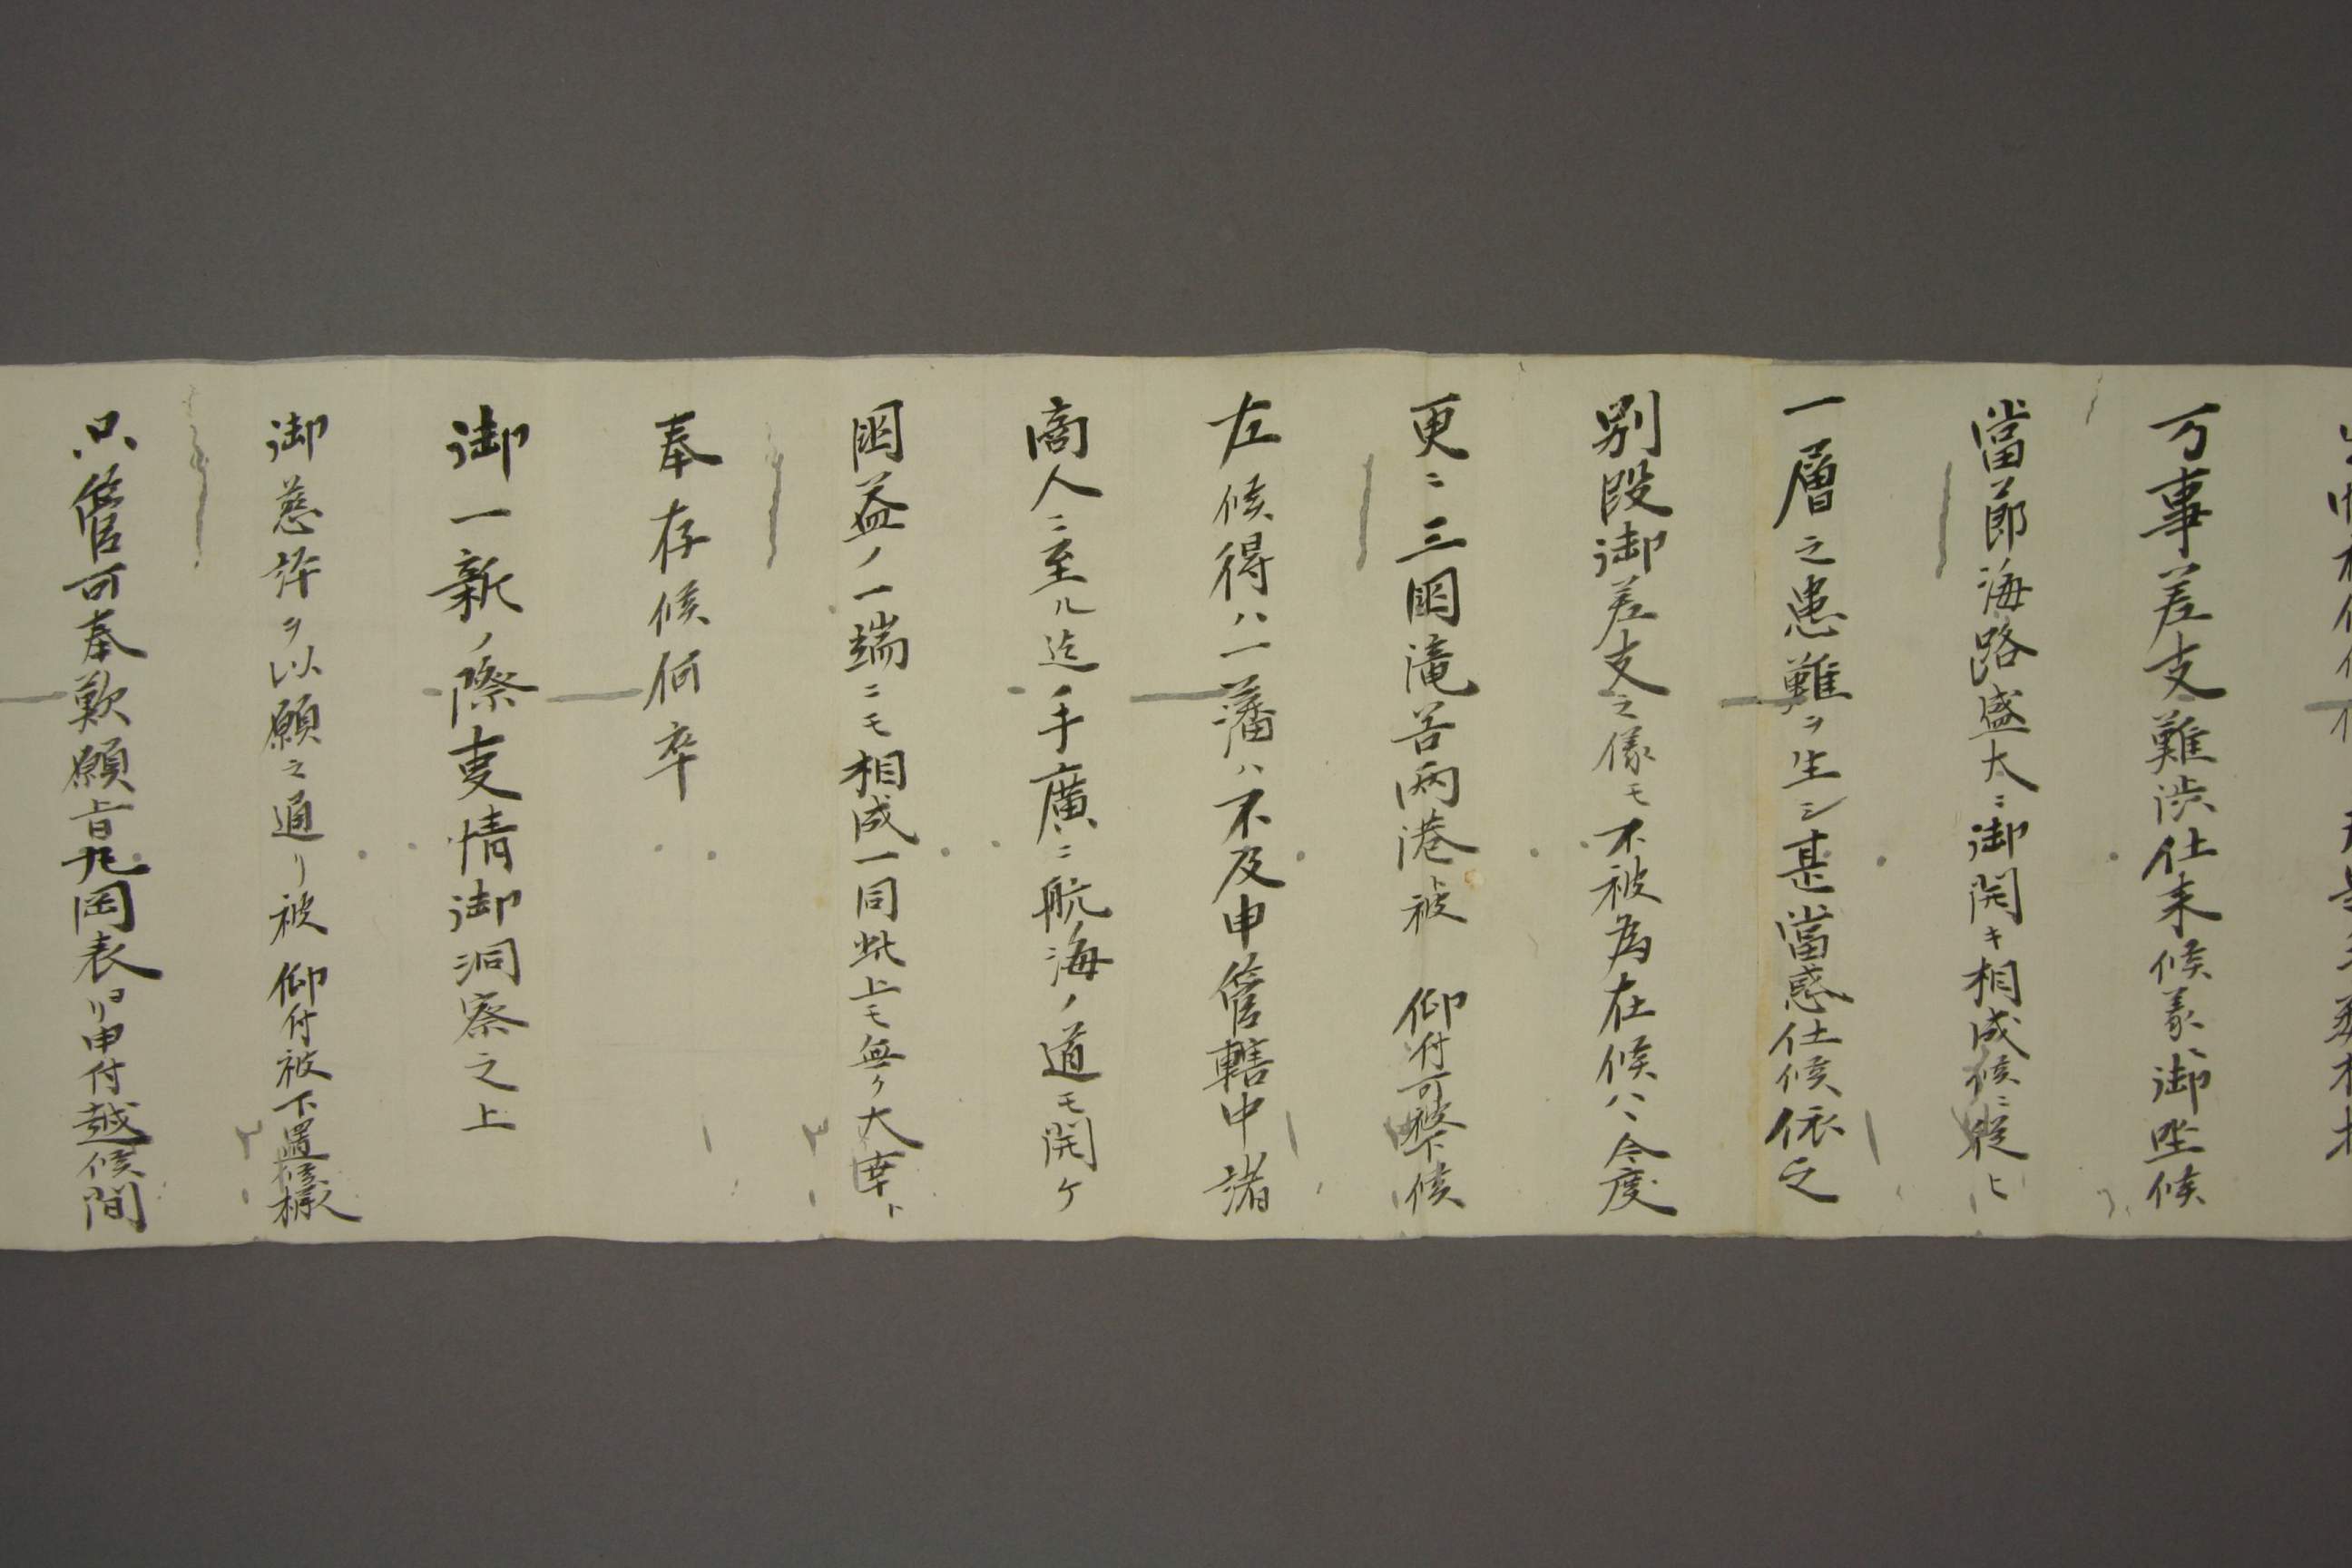 万事差支難渋仕来候義ニ御坐候
當節海路盛大ニ御開キ相成候ニ従ヒ
一層之患難ヲ生シ甚當惑仕候依之
別段御差支之儀モ不被為在候ハヽ今度
更ニ三国滝谷両港被　仰付可被下候
左候得ハ一藩ハ不及申管轄中諸
商人ニ至ル迄手廣ニ航海ノ道モ開ケ
国益ノ一端ニモ相成一同此上モ無ク大幸ト
奉存候何卒
御一新ノ際事情御洞察之上
御慈許ヲ以願之通リ被　仰付被下置候様
只管可奉歎願旨丸岡表ヨリ申付越候間